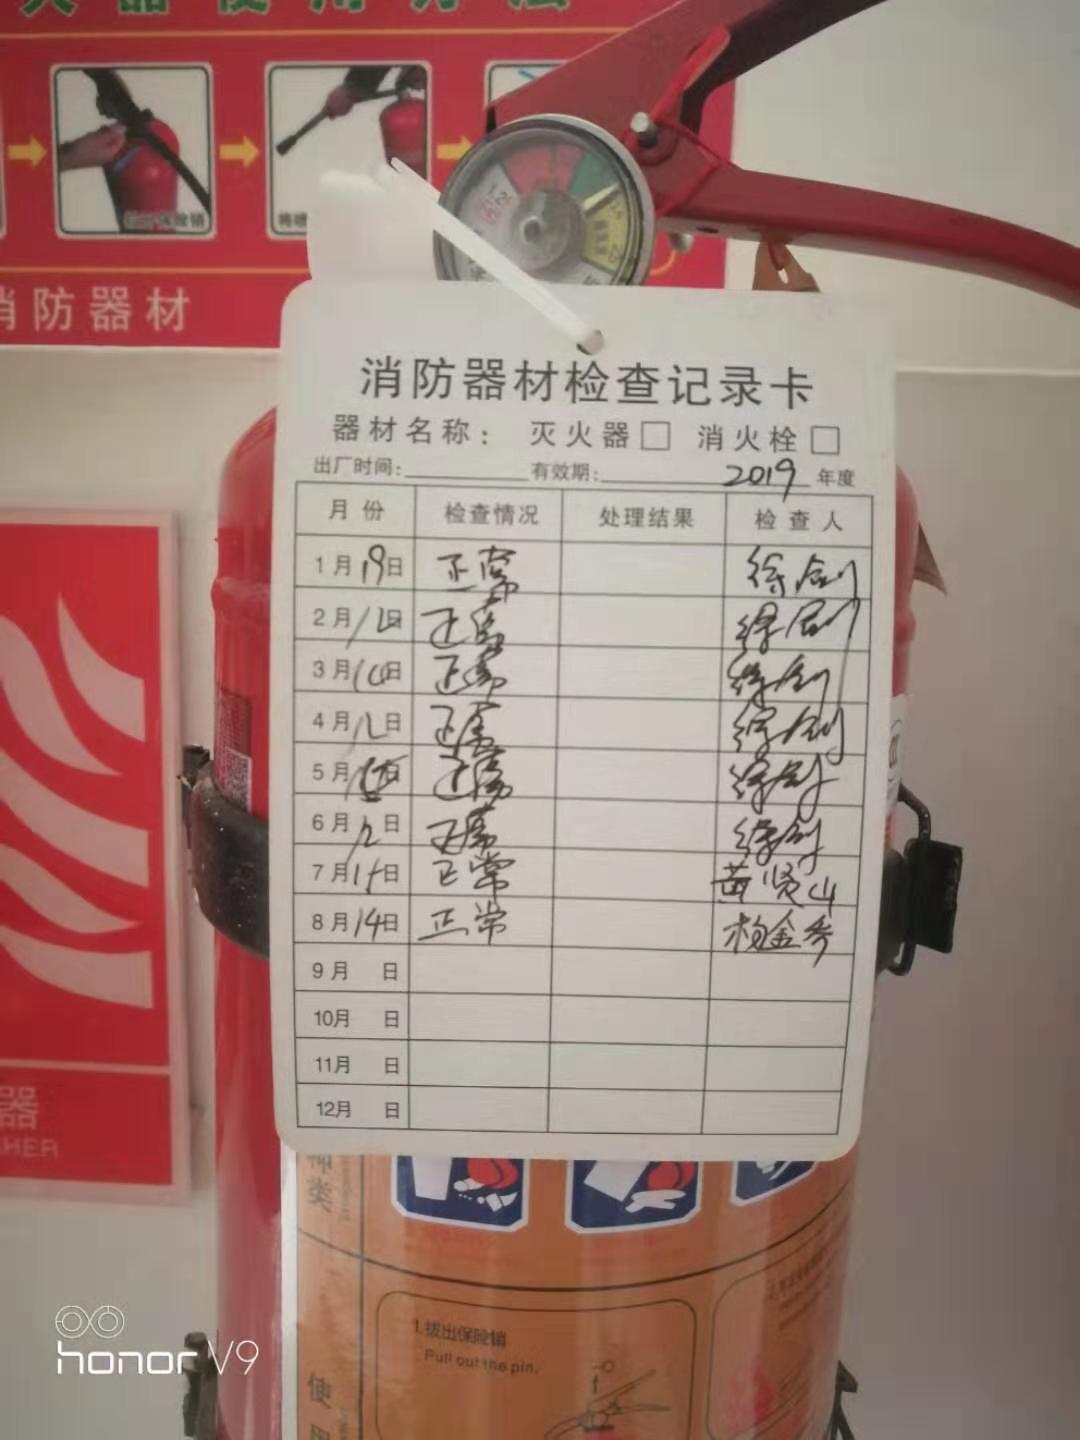 火器使用方法
保险销
将喷
消防器材
消防器材检查记录卡
器材名称： 灭火器□ 消火栓□
出厂时间：________有效期：________2019 年度
月份 检查情况 处理结果 检查人
1月19日 正常 徐剑
2月 日 正常 徐剑
3月10日 正常 徐剑
4月12日 正常 徐剑
5月 日 正常 徐剑
6月12日 正常 徐剑
7月 日 正常 黄贤山
8月14日 正常 杨金
9月 日
10月 日
11月 日
12月 日
器
HER
种类
1.拔出保险销
Pull out the pin.
使用
honor V9